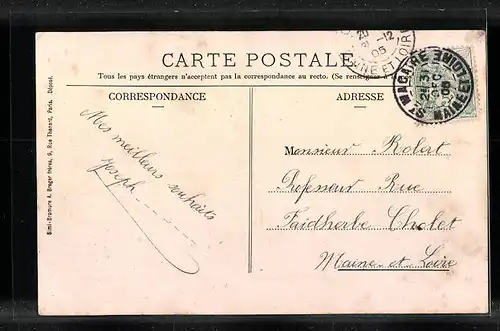 20
-12
05
MAINE ET LOIRE
CARTE POSTALE
Tous les pays étrangers n'acceptent pas la correspondance au recto. (Se renseigner
CORRESPONDANCE
ADRESSE
St MACAIRE
31
05
MAINE ET LOIRE
Mes meilleurs souhaits
Joseph
Monsieur Robert
Professeur Rue
Faidherbe Cholet
Maine-et-Loire
Simi-Bromure A. Breger frères, 9, Rue Thenard, Paris. Déposé.